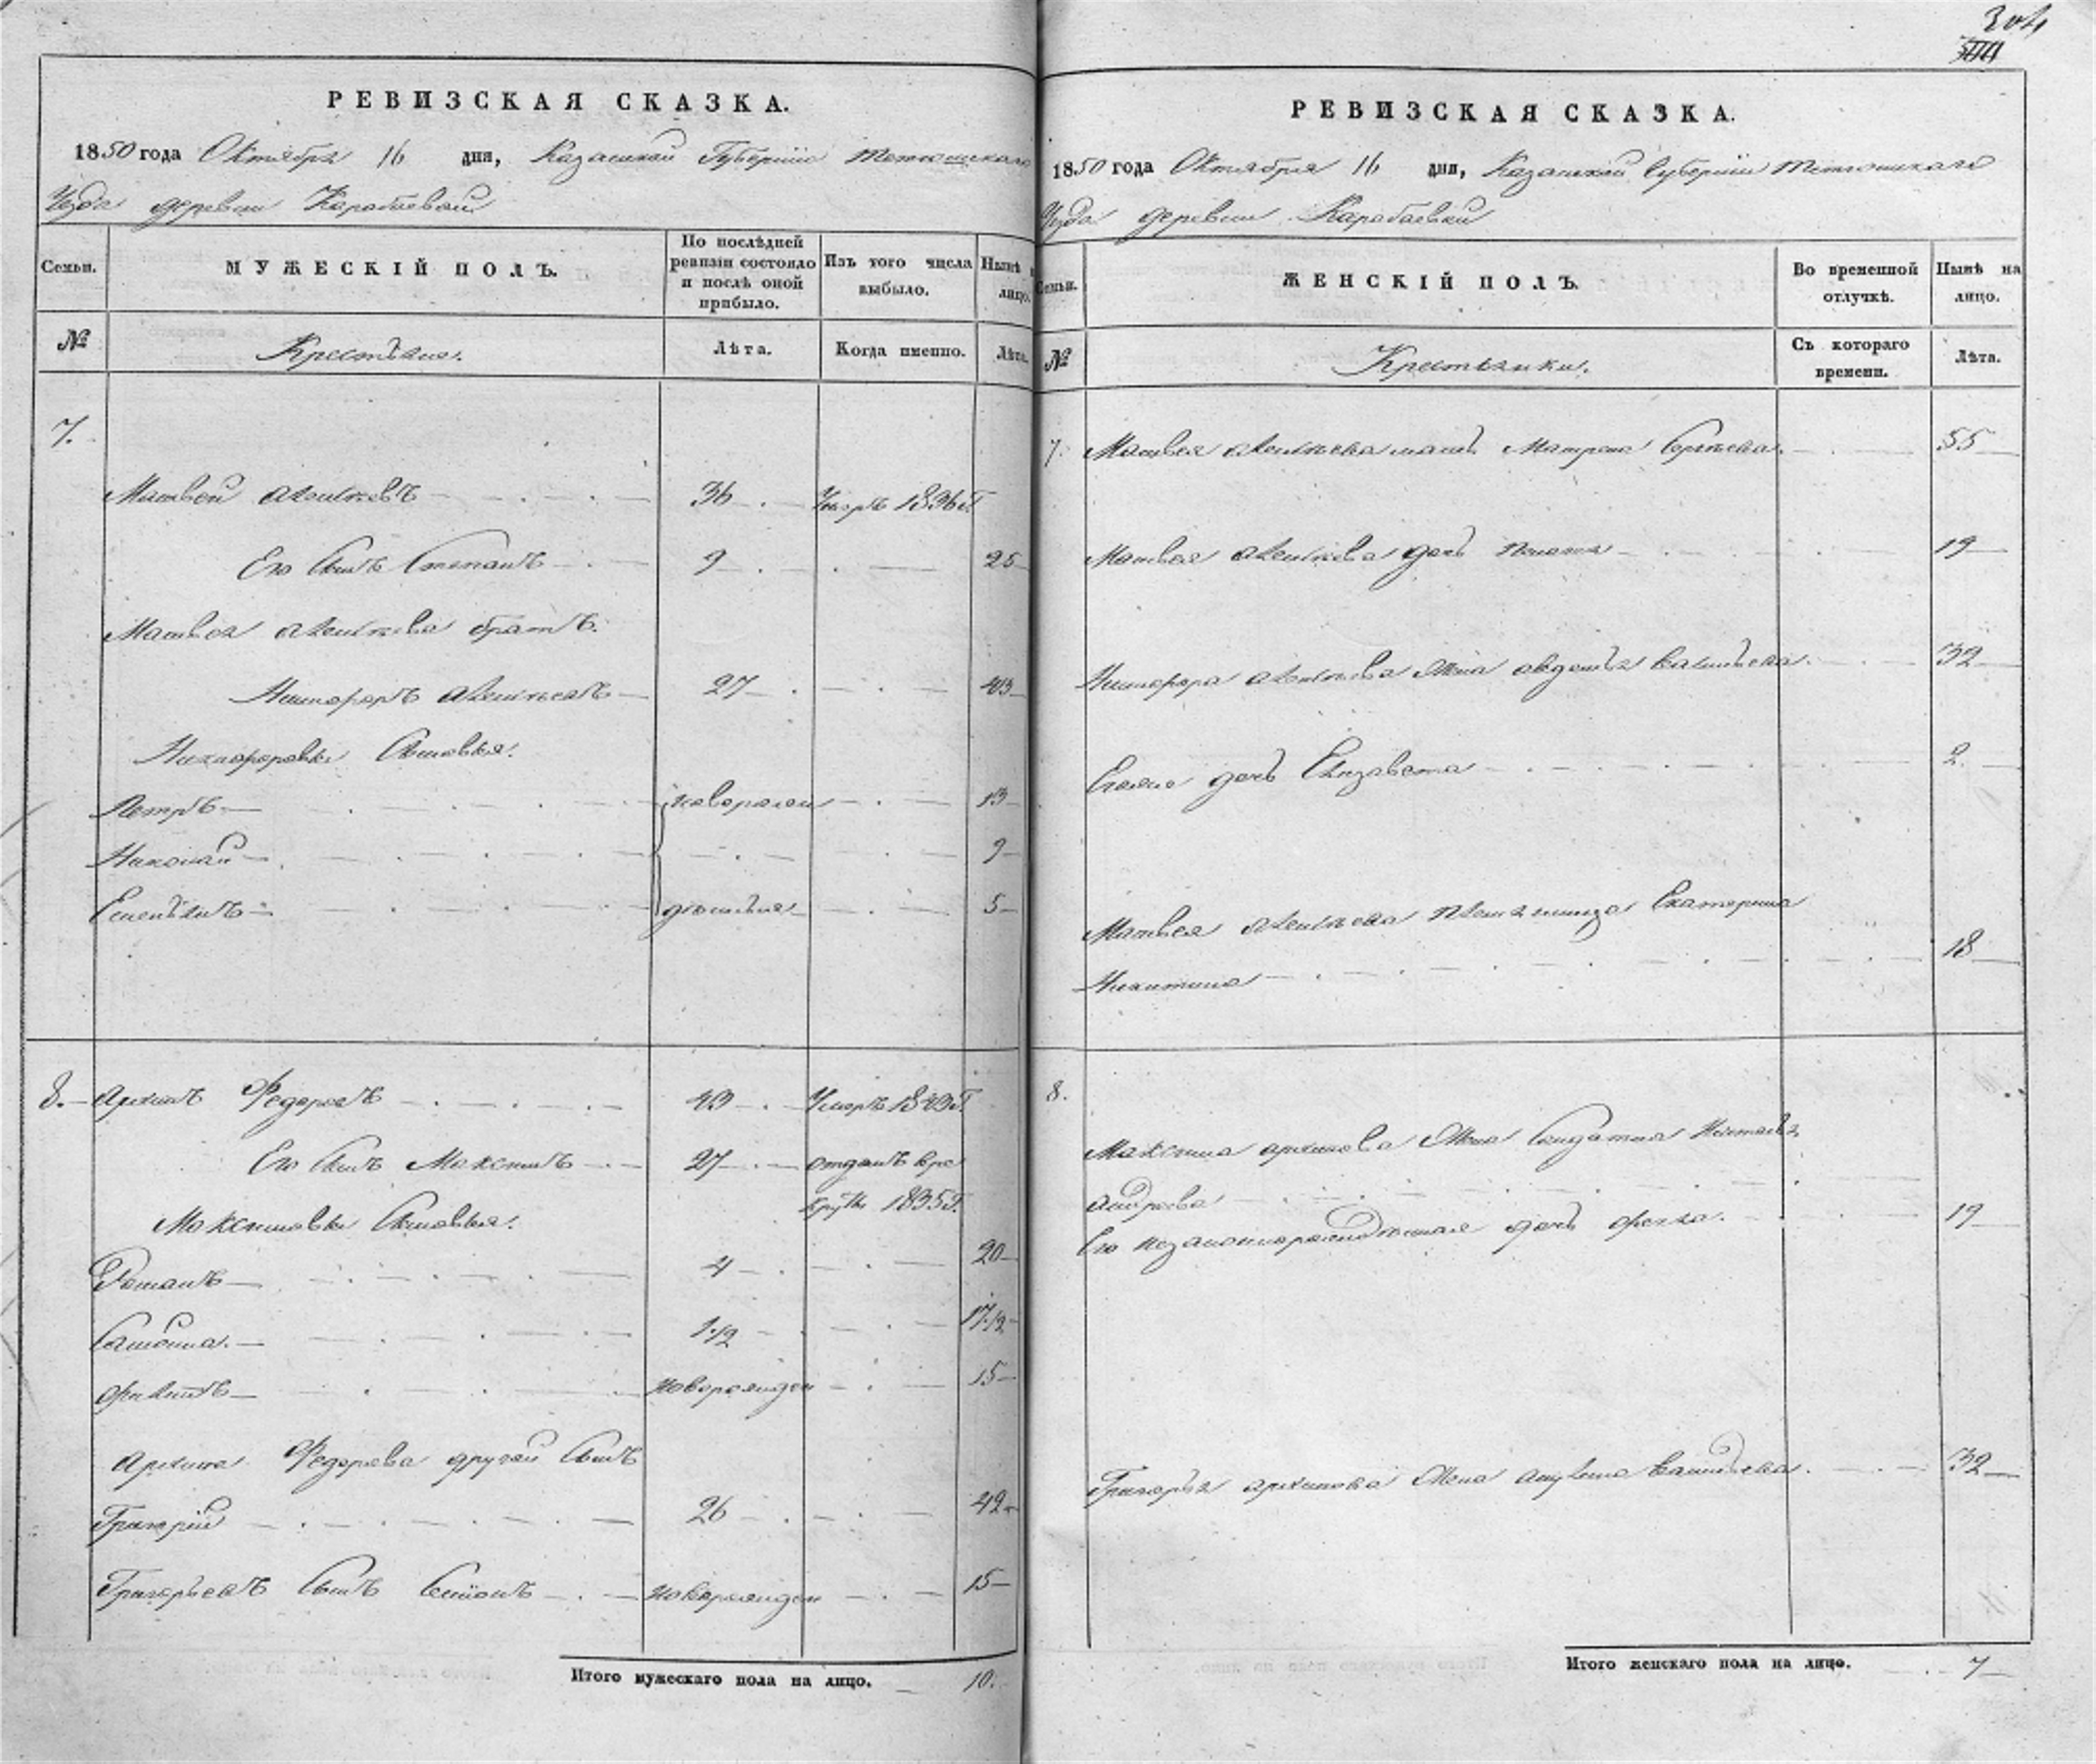 304
РЕВИЗСКАЯ СКАЗКА.
1850 года Октября 16 дня, Казанской Губернии Тетюшскаго
Уезда деревни Карабаевки
Семьи.
МУЖЕСКІЙ ПОЛЪ.
По послѣдней ревизіи состояло и послѣ оной прибыло.
Изъ того числа выбыло.
Нынѣ на лицо.
№
Крестьяне.
Лѣта.
Когда именно.
Лѣта.
7.
Матвей 36 Умеръ 1836 Г
Его Сынъ Степанъ 9 25
Матвея братъ.
Никифоръ 27 43
Никифоровы Сыновья.
Петръ 13
Николай 9
5
8. Архипъ Федоровъ 43 Умеръ 1843 Г.
Его Сынъ Максимъ 27 отданъ в ре
круты 1835 Г.
Максимовы Сыновья.
Романъ 4 20
1 1/2 17 1/2
новорожден 15
Архипа Федорова другой Сынъ
Григорий 26 42
Григорьевъ Сынъ новорожден 15
Итого мужескаго пола на лицо. 10.
РЕВИЗСКАЯ СКАЗКА.
1850 года Октября 16 дня, Казанской Губернии Тетюшскаго
Уезда деревни Карабаевки
Семьи.
ЖЕНСКІЙ ПОЛЪ.
Во временной отлучкѣ.
Нынѣ на лицо.
№
Крестьянки.
Съ котораго времени.
Лѣта.
7. Матвея мать Матрена Сергеева 55
Матвея дочь 19
Никифора жена Авдотья Васильева 32
дочь Елизавета 2
Матвея племянница Екатерина
Никитина 18
8.
Максима Архипова жена Солдатка Наталья
Андреева
Его незаконнорожденная дочь Фекла. 19
Григорья Архипова жена Акулина Васильева. 32
Итого женскаго пола на лицо. 7